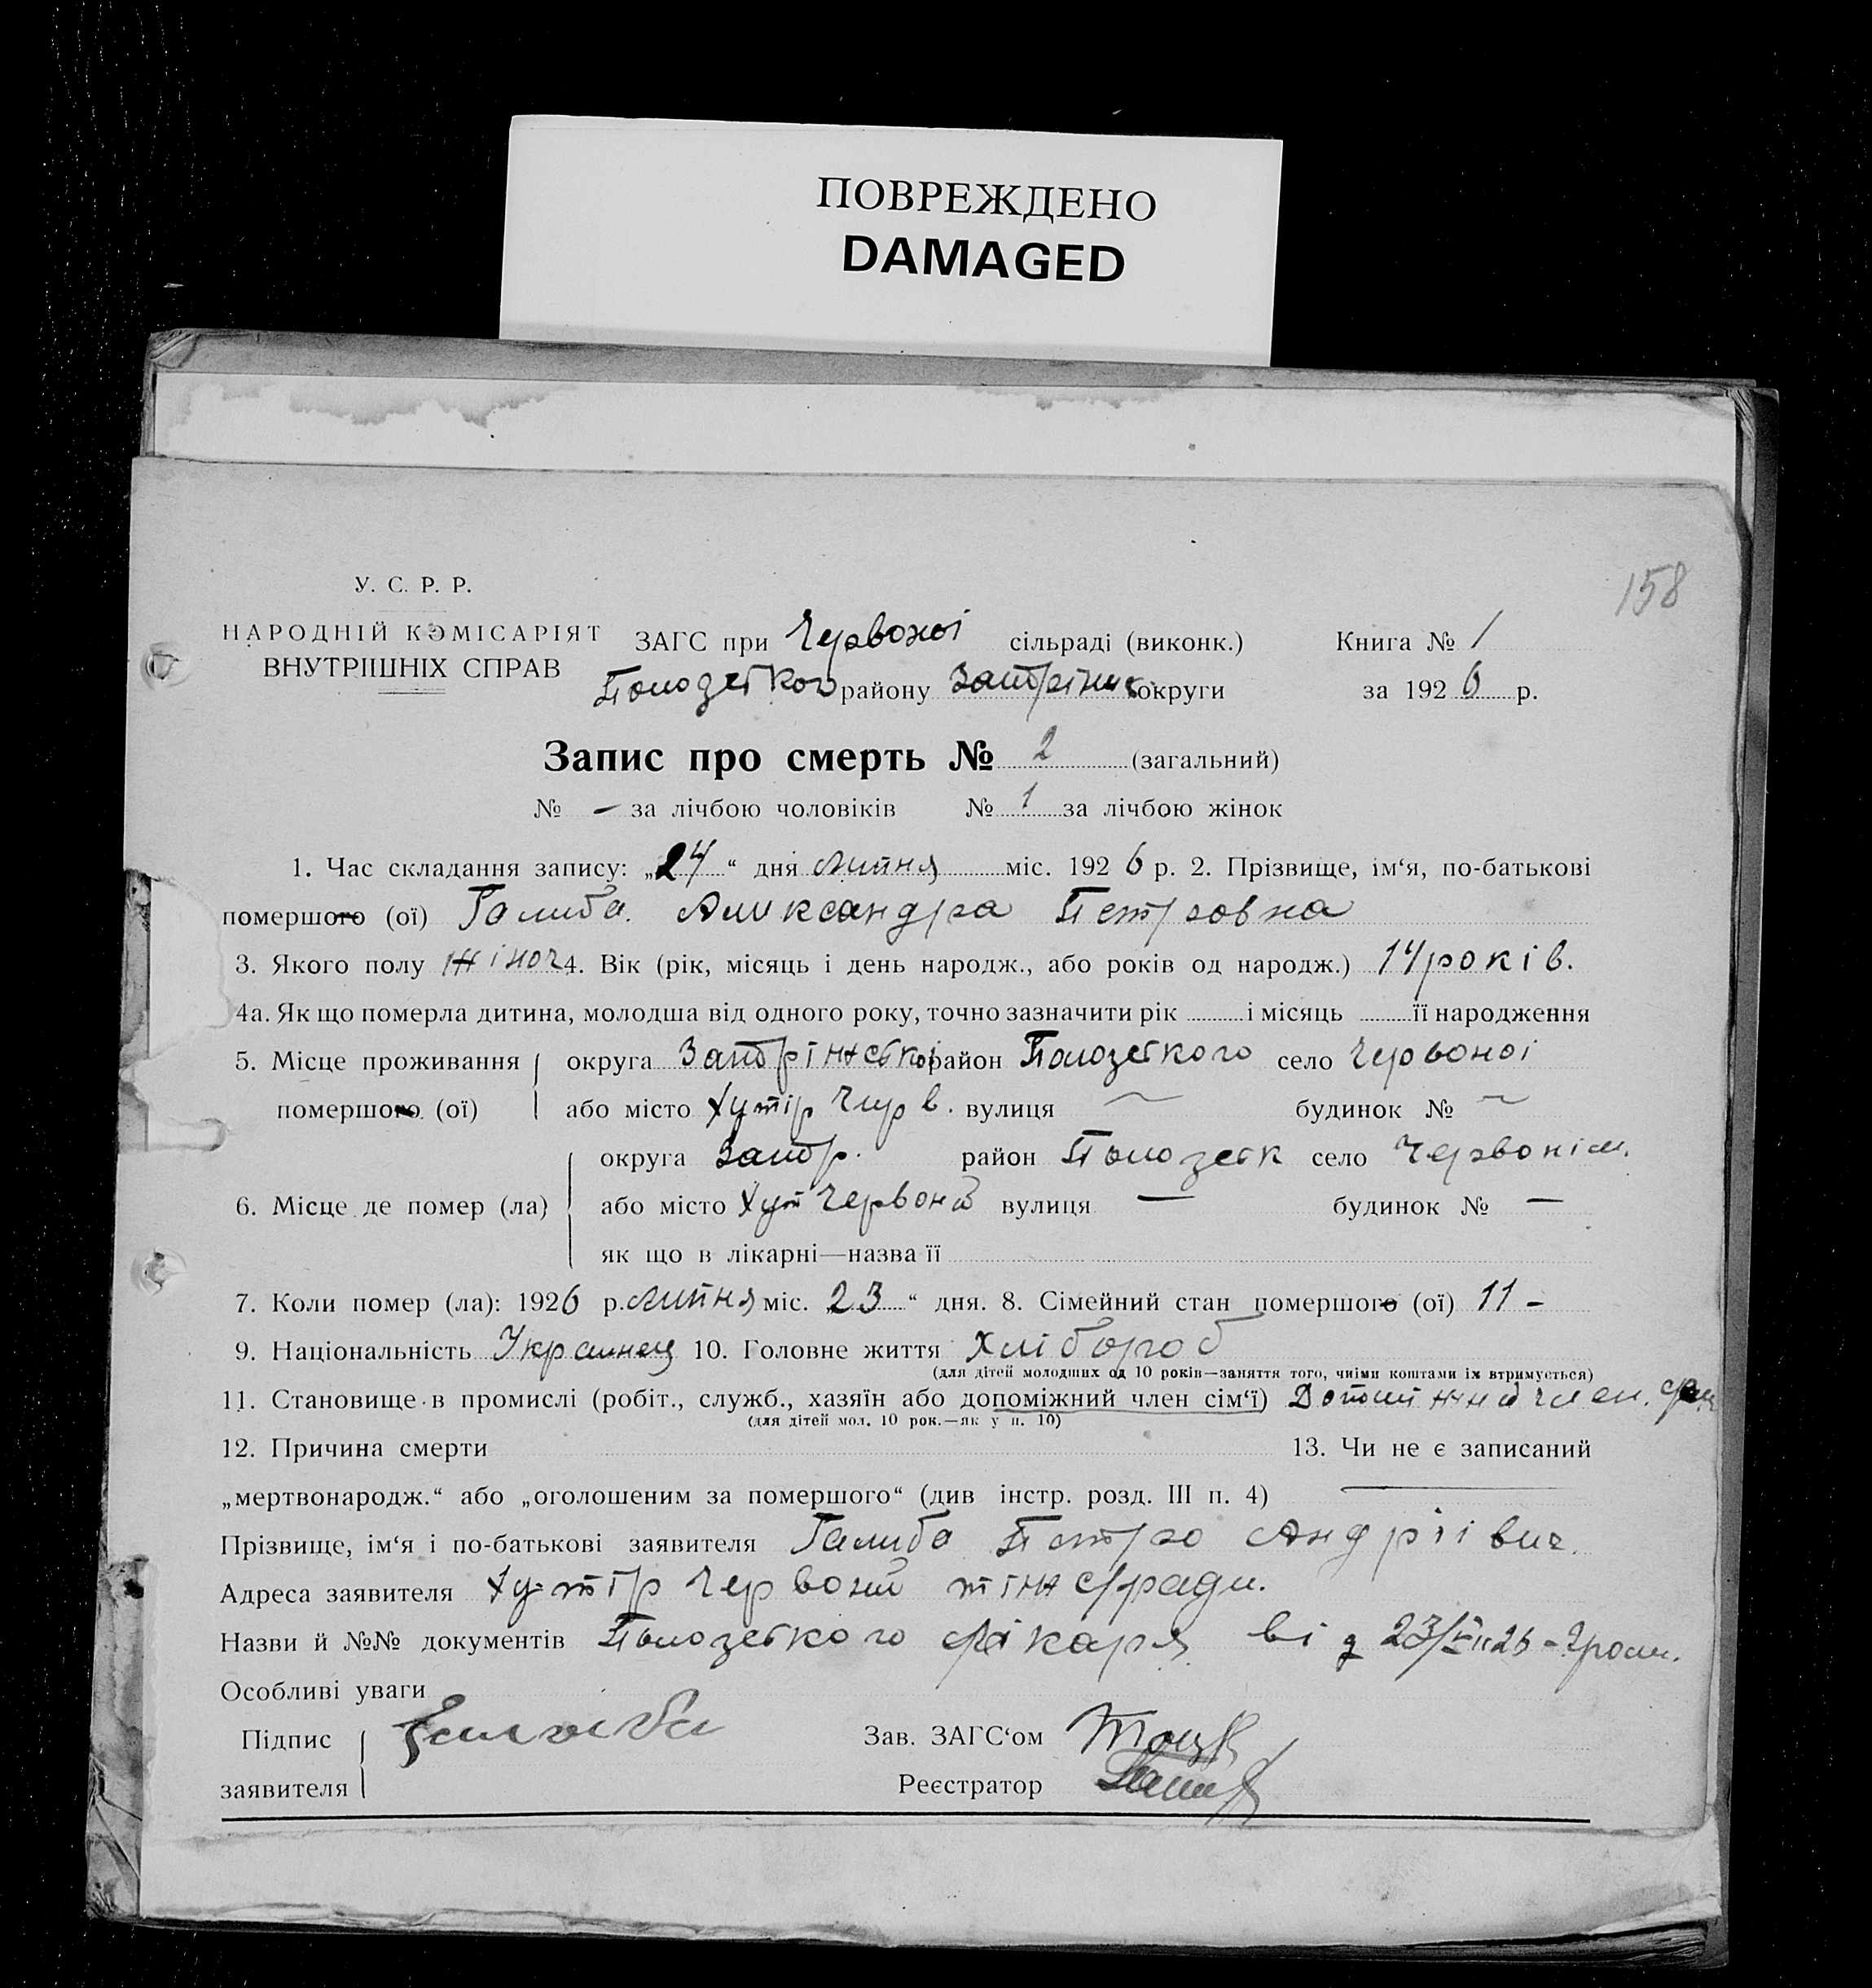 ПОВРЕЖДЕНО
DAMAGED
158
У. С. Р. Р.
НАРОДНІЙ КОМІСАРІЯТ
ВНУТРІШНІХ СПРАВ
ЗАГС при Червоної сільраді (виконк.) Книга № 1
району округи за 1926 р.
Запис про смерть № 2 (загальний)
№ — за лічбою чоловіків № 1 за лічбою жінок
1. Час складання запису: „24“ дня липня міс. 1926 р. 2. Прізвище, ім‘я, по-батькові
помершого (ої) Галиба Александра Петровна
3. Якого полу жіноч 4. Вік (рік, місяць і день народж., або років од народж.) 14 років.
4а. Як що померла дитина, молодша від одного року, точно зазначити рік і місяць її народження
5. Місце проживання округа район Пологського село Червоної
помершого (ої) або місто хутір Черв. вулиця ~ будинок № ~
6. Місце де помер (ла) округа район село
або місто Хут Червоний вулиця — будинок № —
як що в лікарні—назва її
7. Коли помер (ла): 1926 р. липня міс. „23“ дня. 8. Сімейний стан помершого (ої) 11 -
9. Національність Украинец 10. Головне життя Хлібороб
(для дітей молодших од 10 років—заняття того, чиїми коштами їх втримується)
11. Становище в промислі (робіт., служб., хазяїн або допоміжний член сім‘ї)
(для дітей мол. 10 рок.—як у п. 10)
12. Причина смерти 13. Чи не є записаний
„мертвонародж.“ або „оголошеним за помершого“ (див інстр. розд. III п. 4) —
Прізвище, ім‘я і по-батькові заявителя Галиба Петро Андріївич.
Адреса заявителя хутір Червоний
Назви й №№ документів лікаря від
Особливі уваги
Підпис Галиба Зав. ЗАГС‘ом
заявителя Реєстратор